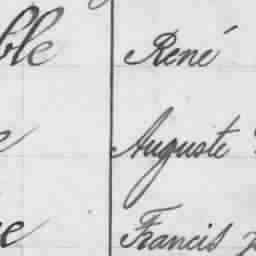 ble René
e Auguste
e Francis